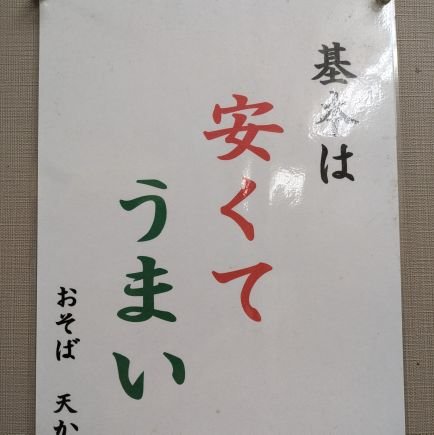 基本は
安くて
うまい
おそば 天か